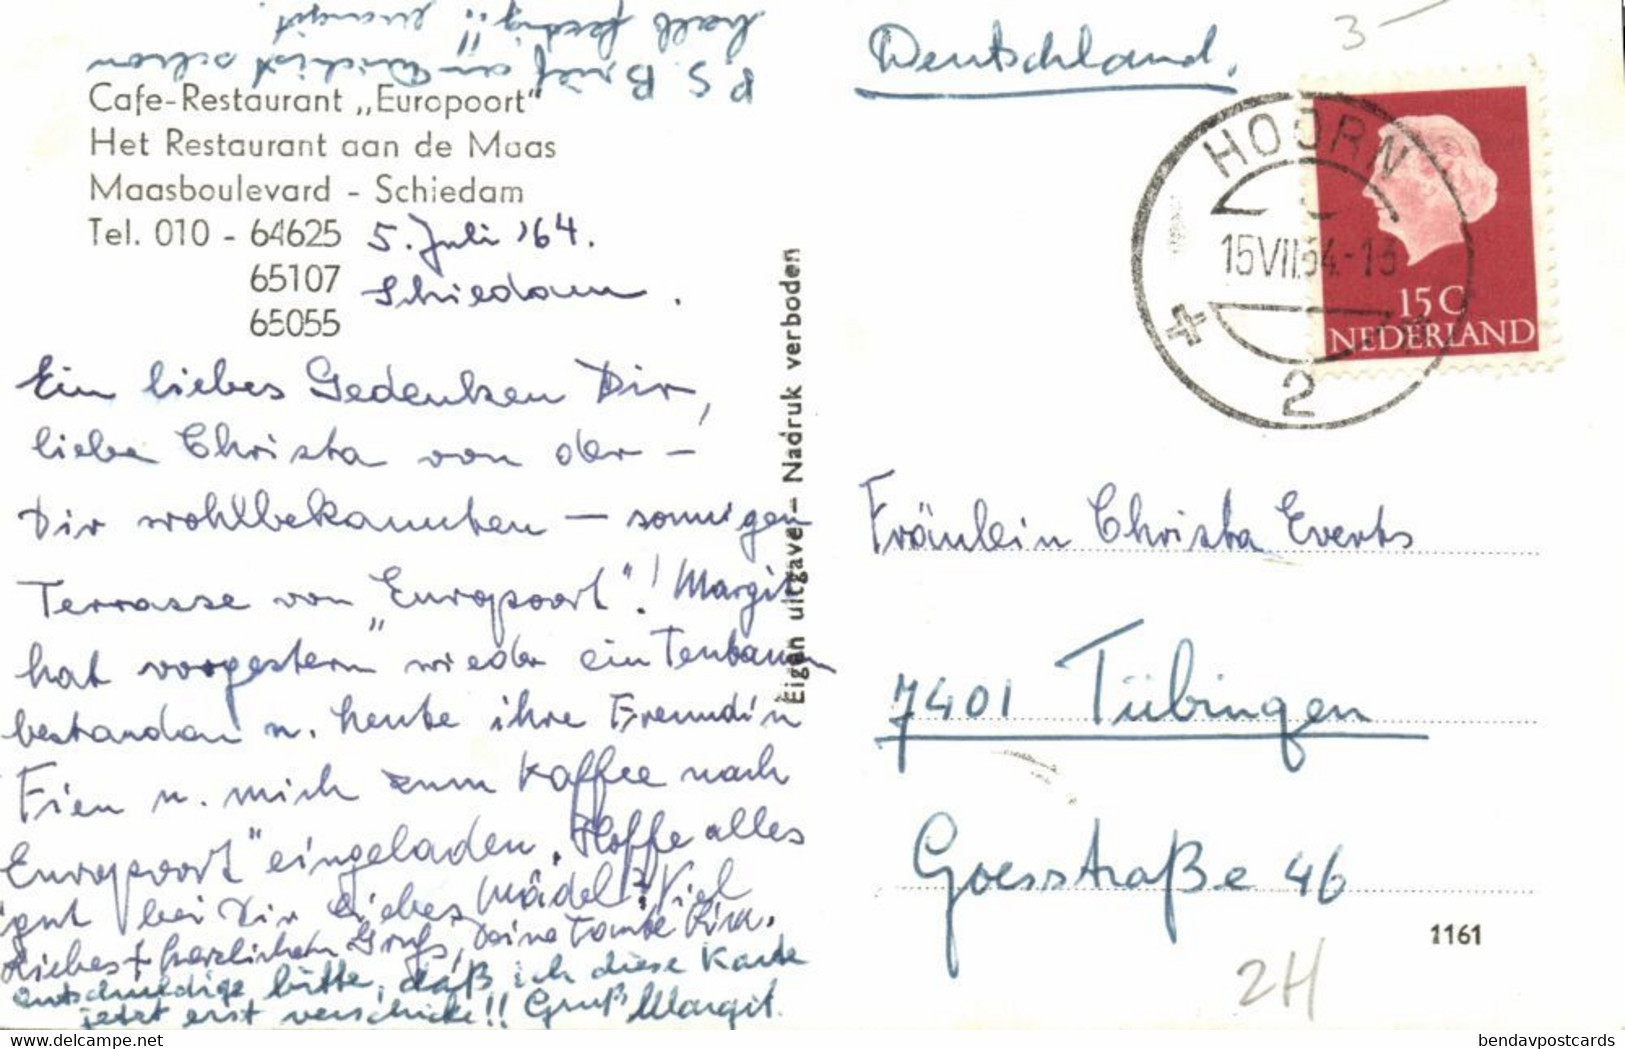 P.S. Brief an Dich ist schon
halb fertig!! Margit.
Cafe-Restaurant „Europoort"
Het Restaurant aan de Maas
Maasboulevard - Schiedam
Tel. 010 - 64625
65107
65055
5. Juli '64.
Schiedam.
Ein liebes Gedenken Dir,
liebe Christa von der -
Dir wohlbekannten - sonnigen
Terrasse von „Europoort"! Margit
hat vorgestern wieder ein Tentamen
bestanden u. heute ihre Freundin
Fien u. mich zum Kaffee nach
Europoort" eingeladen. Hoffe alles
gut bei Dir liebes Mädel? Viel
Liebes + herzlichen Gruß, Deine Tante
Entschuldige bitte, daß ich diese Karte
jetzt erst verschicke!! Gruß Margit.
Eigen uitgave - Nadruk verboden
Deutschland.
3-
HOORN
15VII.64.-13
2
15C
NEDERLAND
Fräulein Christa Everts
7401 Tübingen
Goesstraße 46
1161
2H
bendavpostcards